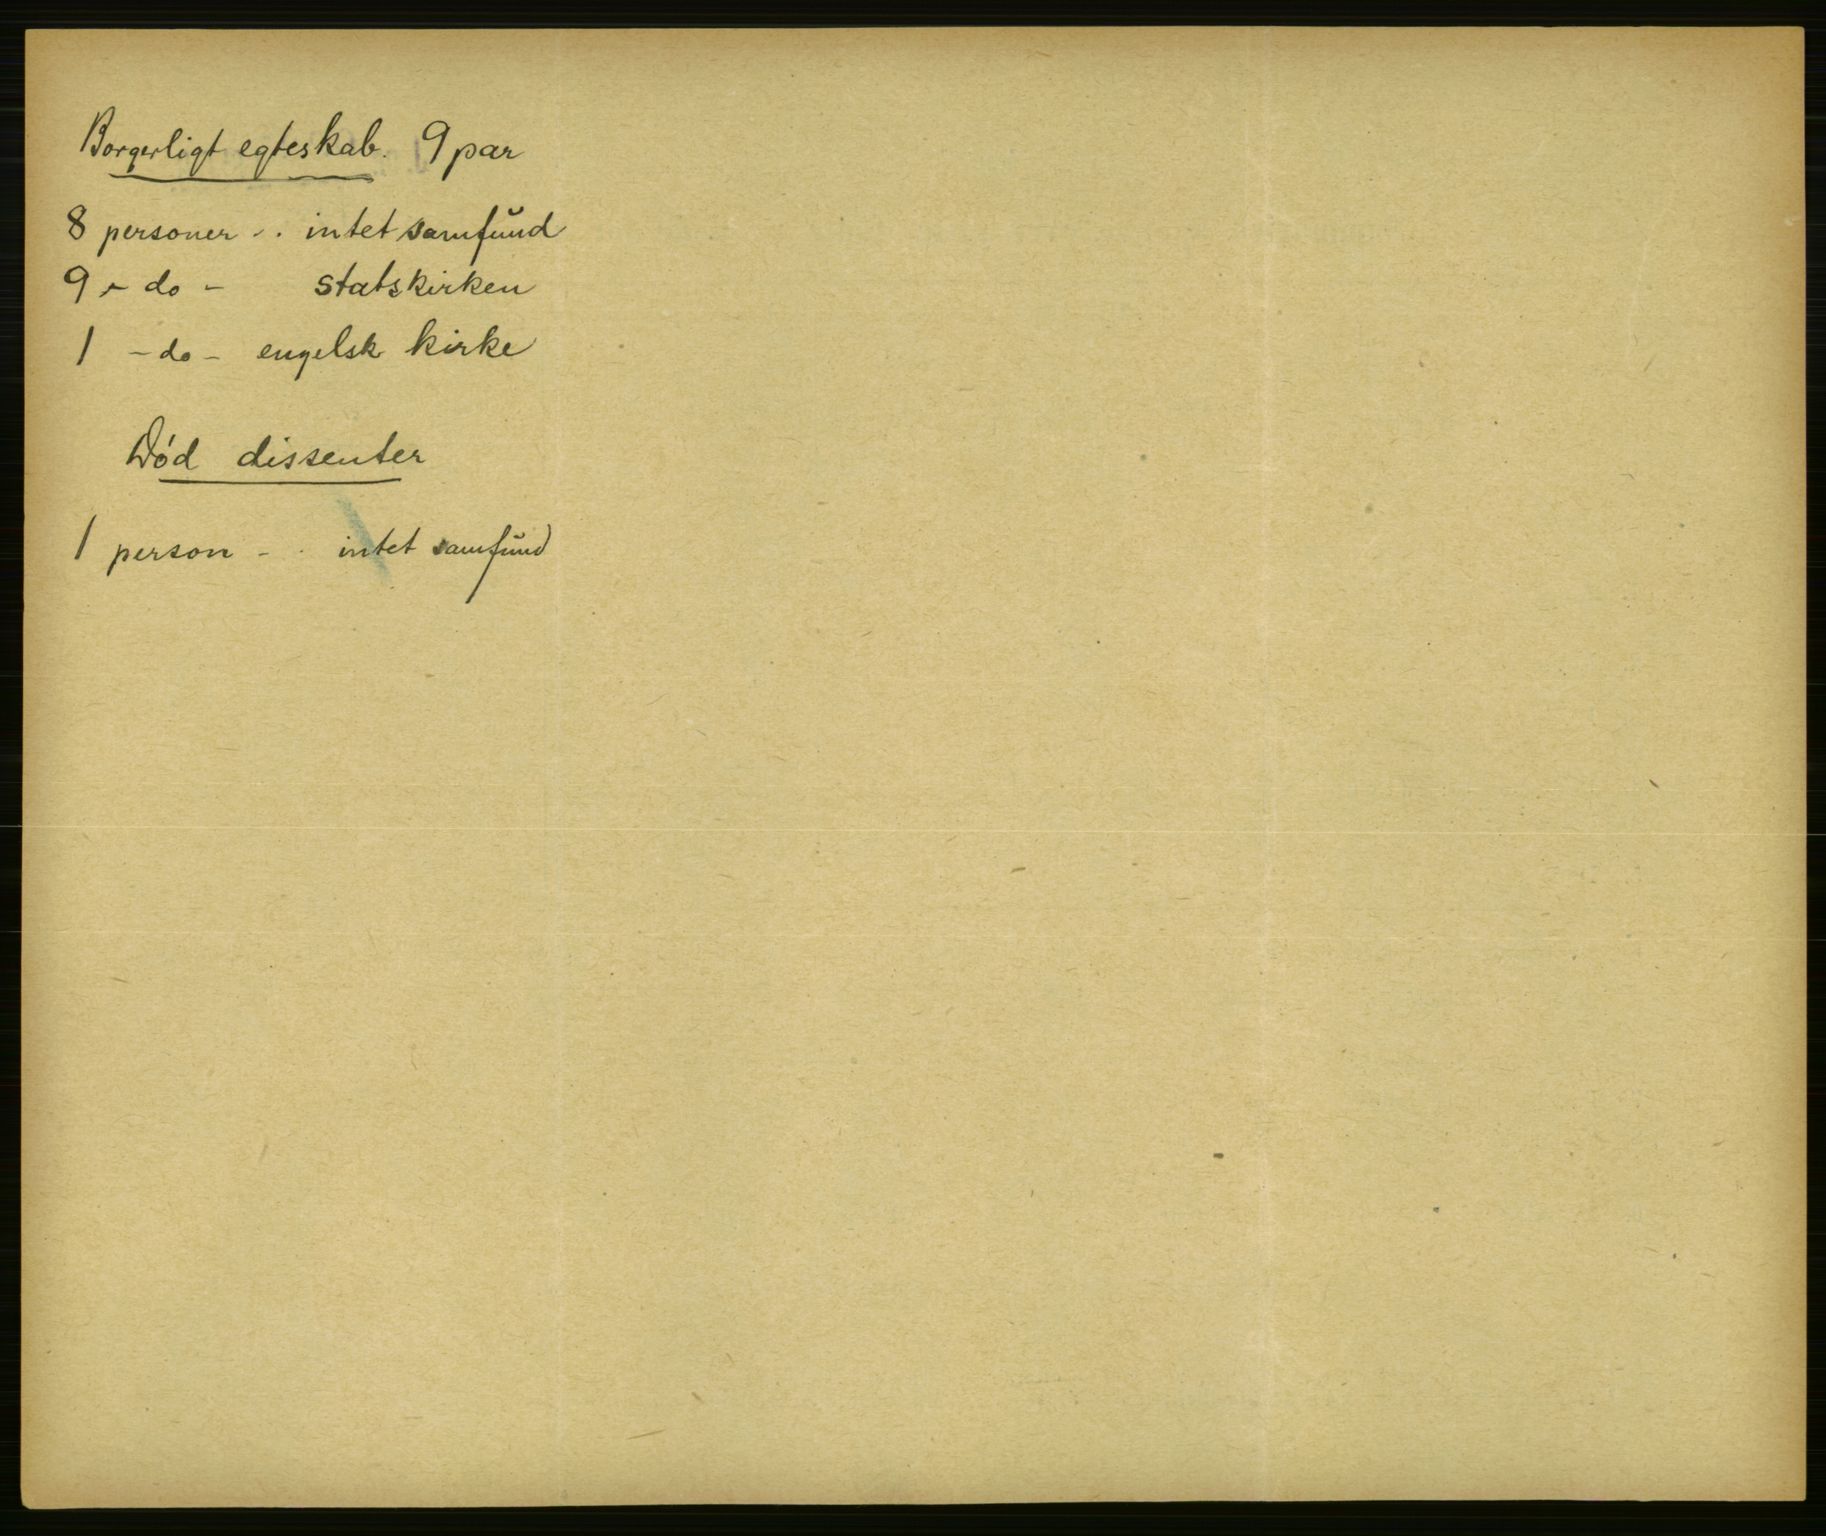 Borgerligt egteskab. 9 par
8 personer - . intet samfund
9 - do - statskirken
1 - do - engelsk kirke
Død dissenter
1 person - . intet samfund